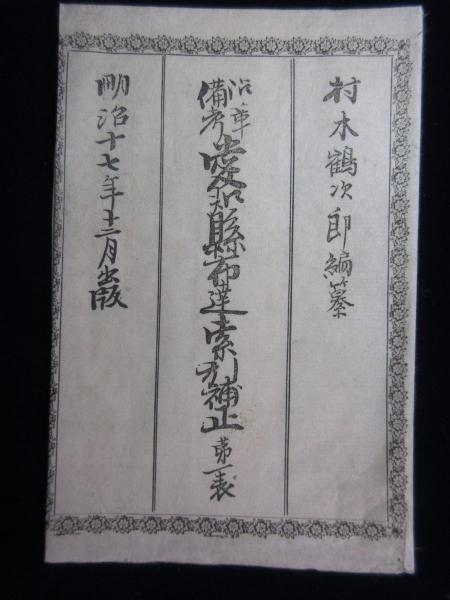 村木鶴次郎編纂
沿革備考愛知縣布達索引補正第一表
明治十七年十二月出版